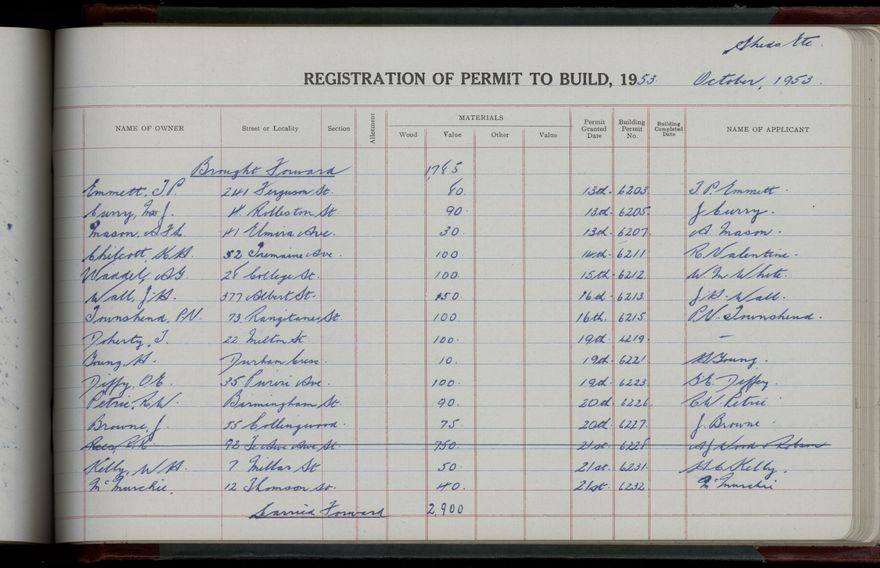 Sheds Etc.
REGISTRATION OF PERMIT TO BUILD, 1953 October, 1953.
NAME OF OWNER Street or Locality Section Allotment MATERIALS Wood Value Other Value Permit Granted Date Building Permit No. Building Completed Date NAME OF APPLICANT
Brought Forward 1,785
Emmett, T.P. 241 Ferguson St. 80 13th. 6203 T.P. Emmett.
Curry, J. 4 Rolleston St. 90. 13th. 6205. J. Curry.
Mason, 41 Elmira Ave. 30. 13th. 6207. A. Mason.
Chilcott, K.H. 52 Tremaine Ave. 100 14th. 6211 R. Valentine.
Waddel, A.G. 28 College St. 100. 15th. 6212. W.M. White.
Wall, J.H. 377 Albert St. 150 16th. 6213. J.H. Wall.
Townshend, P.V. 73 Rangitane St. 100 16th. 6215 P.V. Townshend.
Doherty, T. 22 Milton St. 100. 19th. 6219. —
Young, H. Durham Cresc. 10. 19th. 6221 H. Young.
Diffy, O.E. 35 Puriri Ave. 100. 19th. 6223. Diffy.
Petrie, R.W. Birmingham St. 90. 20th 6226. R.W. Petrie
Browne, J. 55 Collingwood. 75. 20th. 6227. J. Browne.
72 St. 750. 21st 6228 Wood
Kelly, W.H. 7 Millar St 50. 21st. 6231. Kelly.
McMurchie. 12 Thomson St. 40. 21st. 6232. McMurchie
Carried Forward 2,900